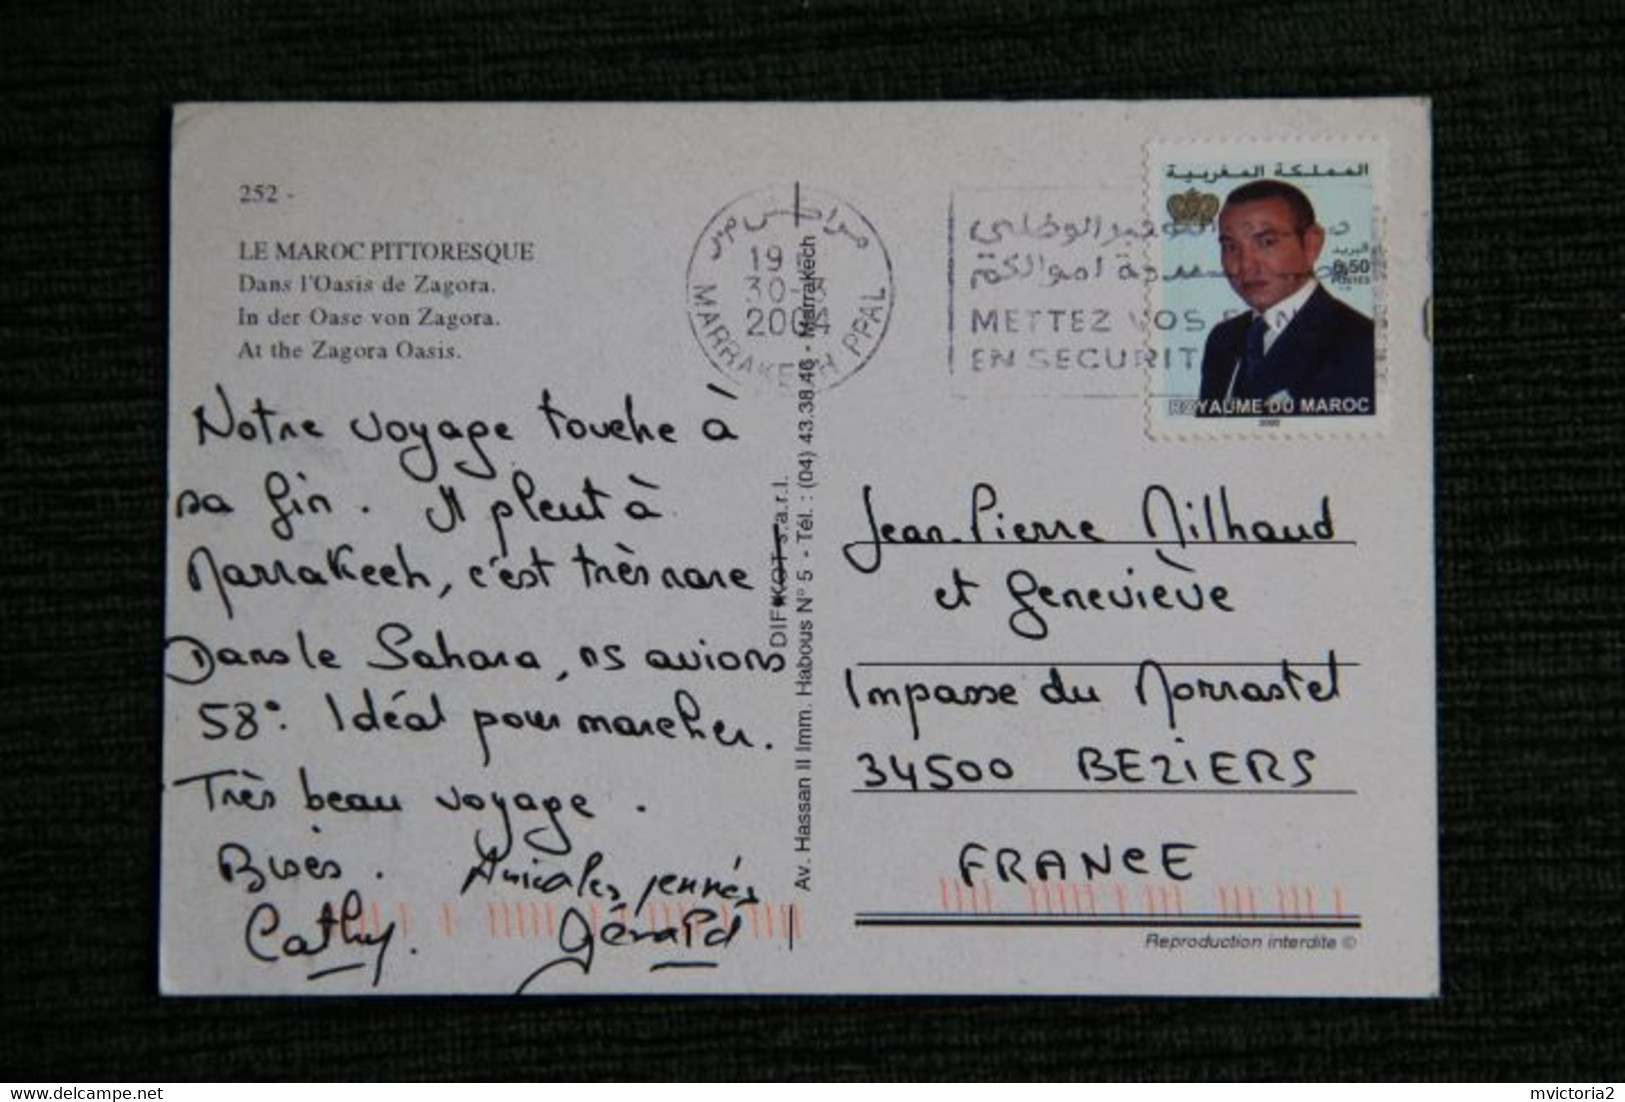 252 -
LE MAROC PITTORESQUE
Dans l'Oasis de Zagora.
In der Oase von Zagora.
At the Zagora Oasis.
Notre voyage touche à
sa fin. Il pleut à
Marrakech, c'est très rare
Dans le Sahara, ns avions
58°. Idéal pour marcher.
Très beau voyage.
Bises. Amicales pensées
Cathy. Gérard
DIFKOT s.a.r.l.
Av. Hassan II Imm. Habous N° 5 - Tél. : (04) 43.38.46 - Marrakech
19
30-8
2004
MARRAKECH PPAL
METTEZ VOS
EN SECURIT
المملكة المغربية
البريد
6,50
POSTES
ROYAUME DU MAROC
2002
Jean-Pierre Milhaud
et Geneviève
Impasse du Morrastel
34500 BEZIERS
FRANCE
Reproduction interdite ©
mvictoria2